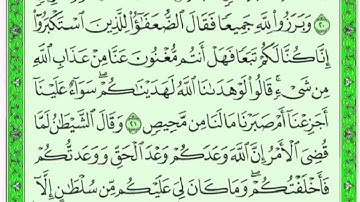 ٢٠ وَبَرَزُوا۟ لِلَّهِ جَمِيعًا فَقَالَ ٱلضُّعَفَٰٓؤُا۟ لِلَّذِينَ ٱسْتَكْبَرُوٓا۟
إِنَّا كُنَّا لَكُمْ تَبَعًا فَهَلْ أَنتُم مُّغْنُونَ عَنَّا مِنْ عَذَابِ ٱللَّهِ
مِن شَىْءٍ ۚ قَالُوا۟ لَوْ هَدَىٰنَا ٱللَّهُ لَهَدَيْنَٰكُمْ ۖ سَوَآءٌ عَلَيْنَآ
أَجَزِعْنَآ أَمْ صَبَرْنَا مَا لَنَا مِن مَّحِيصٍ ٢١ وَقَالَ ٱلشَّيْطَٰنُ لَمَّا
قُضِىَ ٱلْأَمْرُ إِنَّ ٱللَّهَ وَعَدَكُمْ وَعْدَ ٱلْحَقِّ وَوَعَدتُّكُمْ
فَأَخْلَفْتُكُمْ ۖ وَمَا كَانَ لِىَ عَلَيْكُم مِّن سُلْطَٰنٍ إِلَّآ